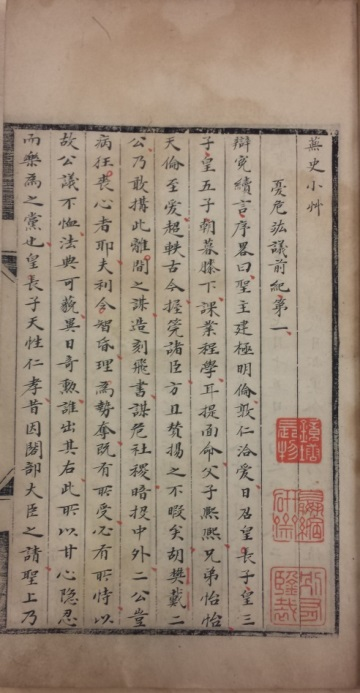 蕪史小艸
憂危竑議前紀第一
辯冤續言序畧曰聖主建極明倫敦仁洽愛日召皇長子皇三
子皇五子朝暮膝下課業程學耳提面命父子熙熙兄弟怡怡
天倫至愛超軼古今揆筦諸臣方且贊揚之不暇矣胡樊戴二
公乃敢搆此離間之謀造刻飛書謀危社稷暗投中外二公豈
病狂喪心者耶夫利令智昏理為勢奪既有所愛心有所恃以
故公議不恤法典可藐異日奇勲誰出其右此所以甘心隐忍
而樂為之黨也皇長子天性仁孝昔因閣部大臣之請聖上乃